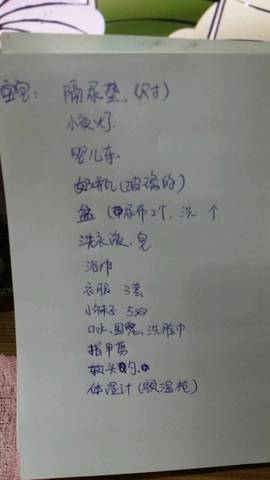 宝宝: 隔尿垫 (尺寸)
小夜灯
婴儿车
奶瓶(玻璃的)
盆 (尿布2个, 洗 个
洗衣液, 皂
浴巾
衣服 3套
小袜子 5双
口水, 围兜, 洗脸巾
指甲剪
体温计 (额温枪)